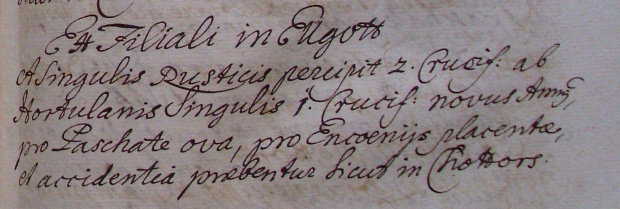 Ex Filiali in Ellgott
A Singulis Rusticis percipit 2. Crucif: ab
Hortulanis Singulis 1. Crucif: novus Annus,
pro Paschate ova, pro Encoenijs placentæ,
et accidentia præbentur Sicut in